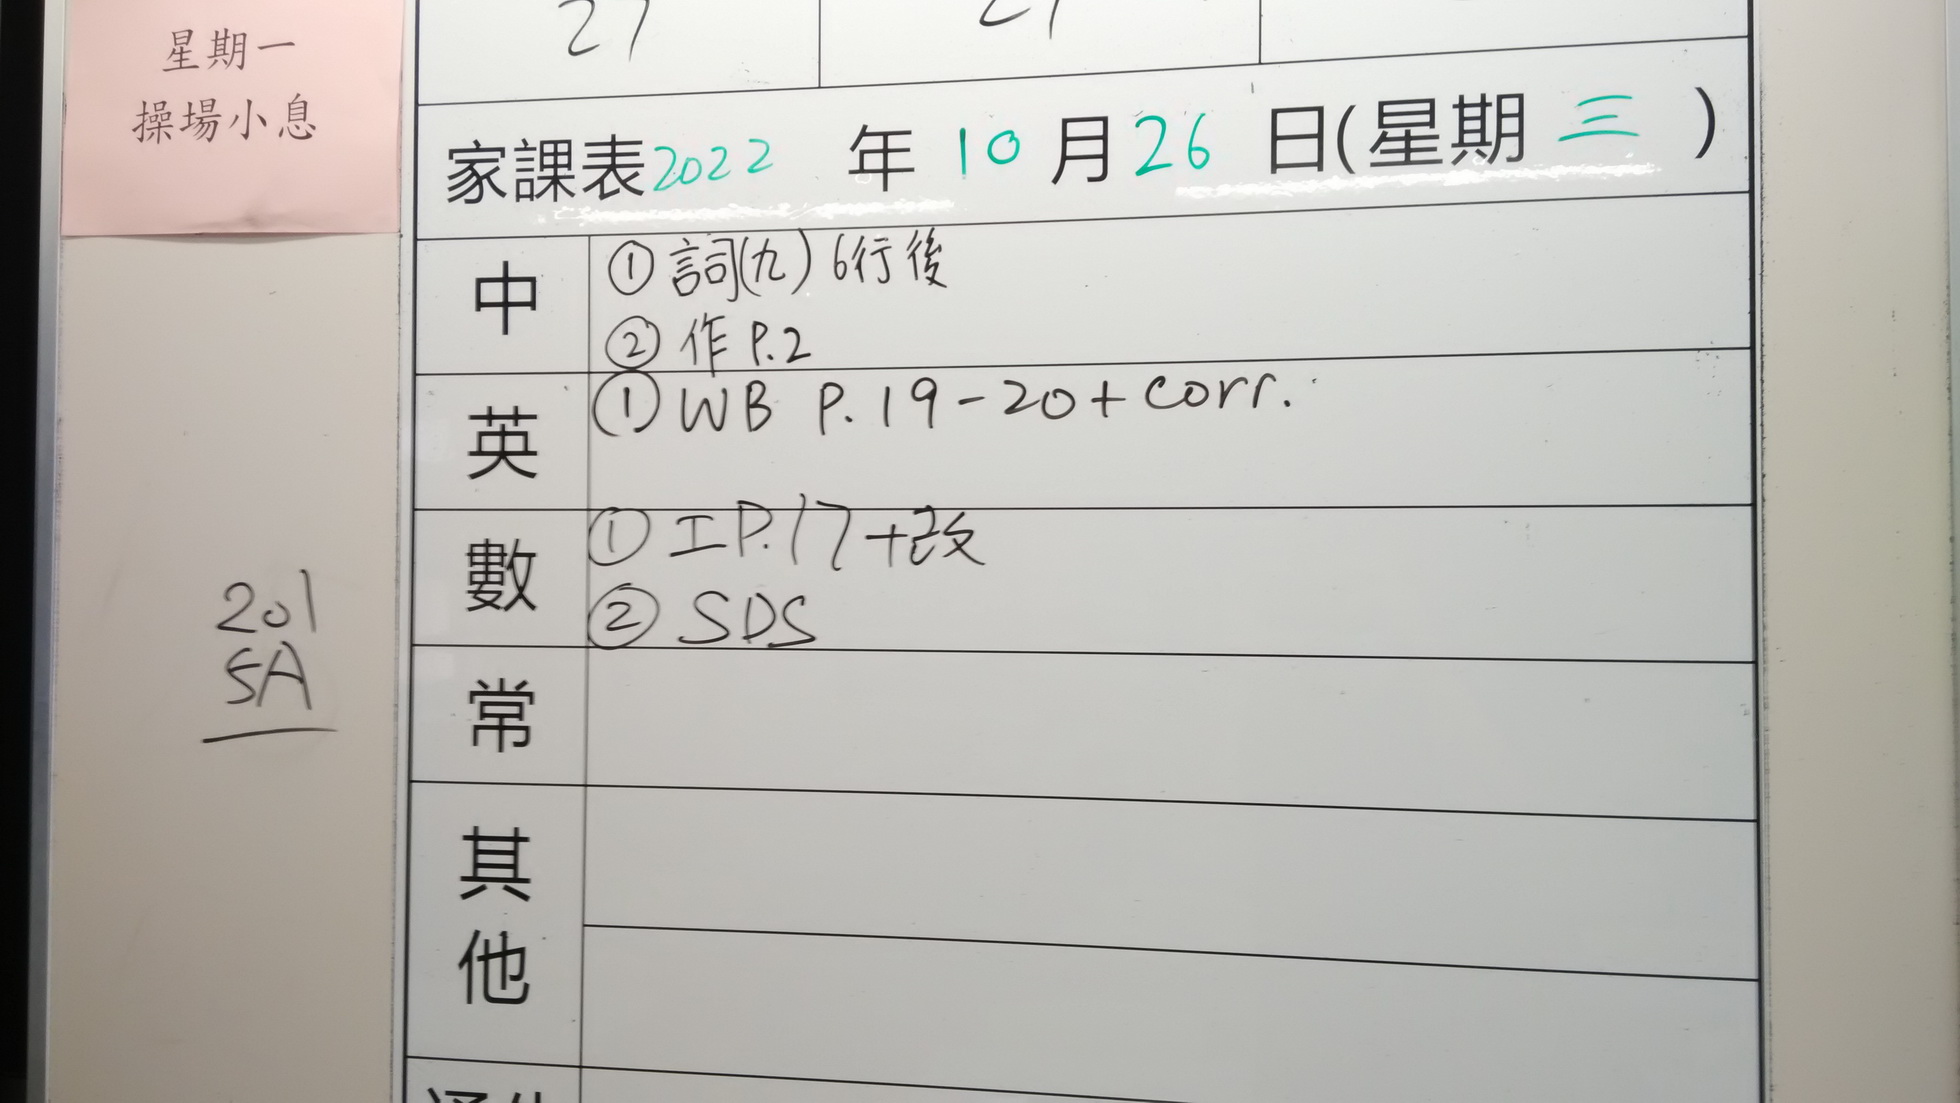 星期一
操場小息
27
27
家課表2022 年 10 月 26 日(星期 三 )
中
① 詞(九) 6行後
② 作 P.2
英
① WB P.19-20+corr.
數
① 工P.17+改
② SDS
常
其他
201
5A